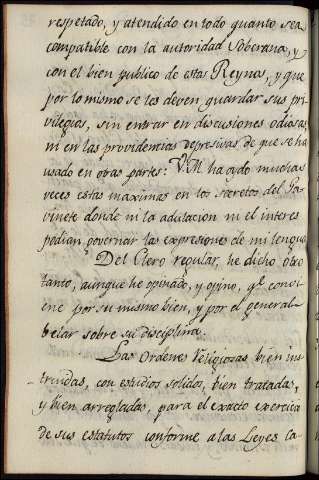 respetado, y atendido en todo quanto sea
compatible con la autoridad Soberana, y
con el bien publico de estos Reynos, y que
por lo mismo se les deven guardar sus pri-
vilegios, sin entrar en discusiones odiosas,
ni en las providencias depresivas de que se ha
usado en otras partes: V.M. ha oydo muchas
veces estas maximas en los secretos del Ga-
vinete donde ni la adulacion ni el interes
podian governar las expresiones de mi lengua
Del Clero regular, he dicho otro
tanto, aunque he opinado, y opino, qe. convi-
ene por su mismo bien, y por el general
velar sobre su disciplina.
Las Ordenes Religiosas bien ins-
truidas, con estudios solidos, bien tratadas,
y bien arregladas, para el exacto exercicio
de sus estatutos conforme a las Leyes Ca-